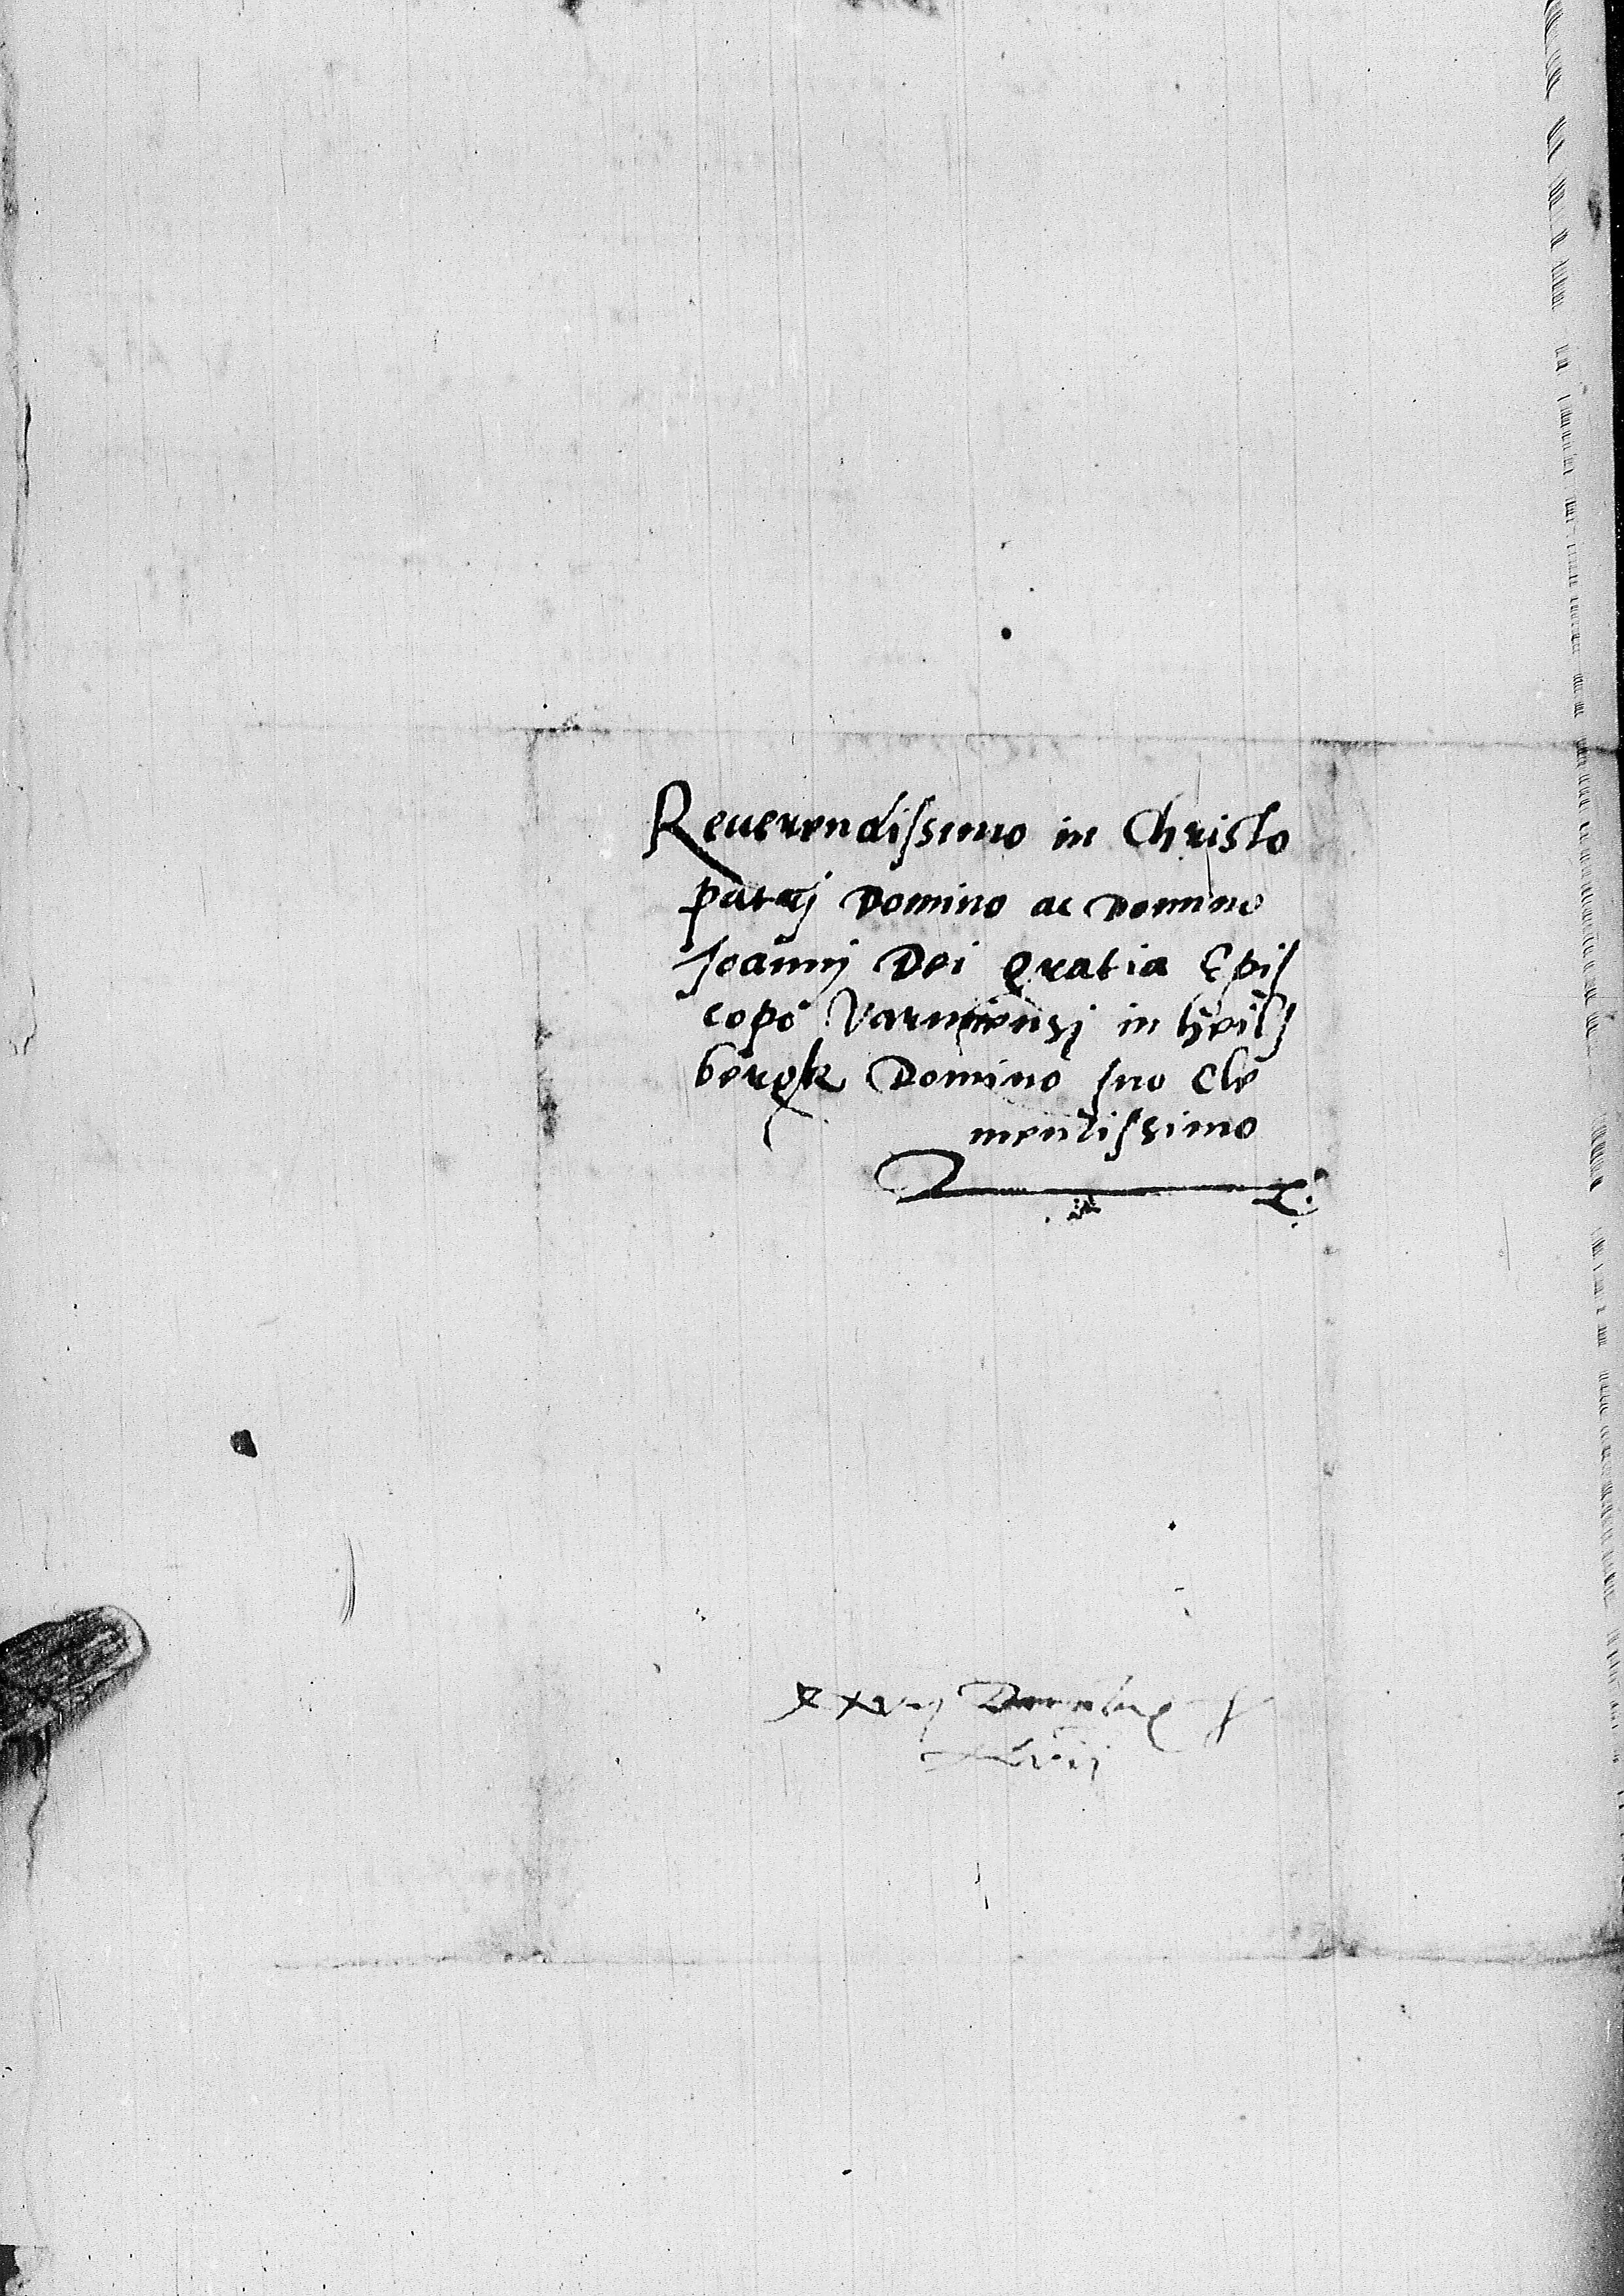 Reuerendissimo in Christo
patrj Domino ac Domino
Joannj Dei gratia Epis
copo Varmiensj in heils
bergk Domino suo Cle
mentissimo